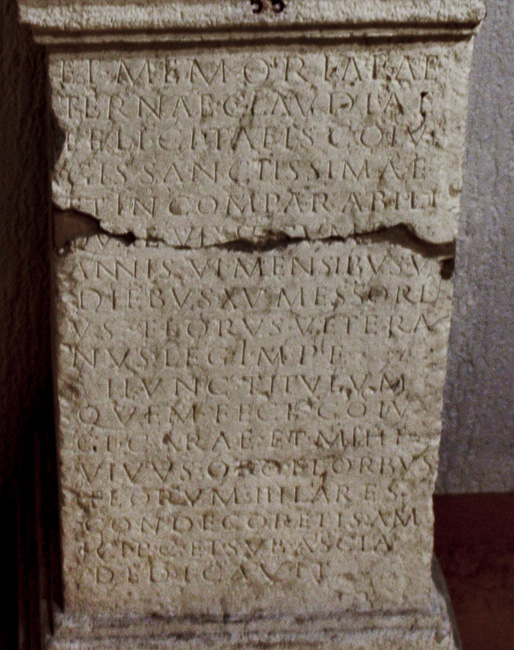 33
ET MEMORIAE AE
TERNAE CLAVDIAE
FELICITATIS COIV
GIS SANCTISSIMAE
ET INCOMPARABILI
ANNIS VI MENSIBVS V
DIEBVS XV MESSORI
VS FLORVS VETERA
NVS LEG
HVNC TITVLVM
QVEM FECI COIV
GI CARAE ET MIHI
VIVVS
HILARES
CONDECORETIS AM
ET SVB ASCIA
DEDICAVIT